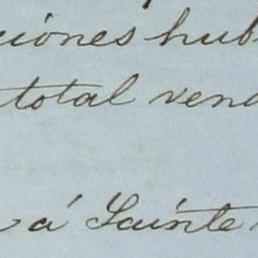 ciones hub
total vend
á Sainte